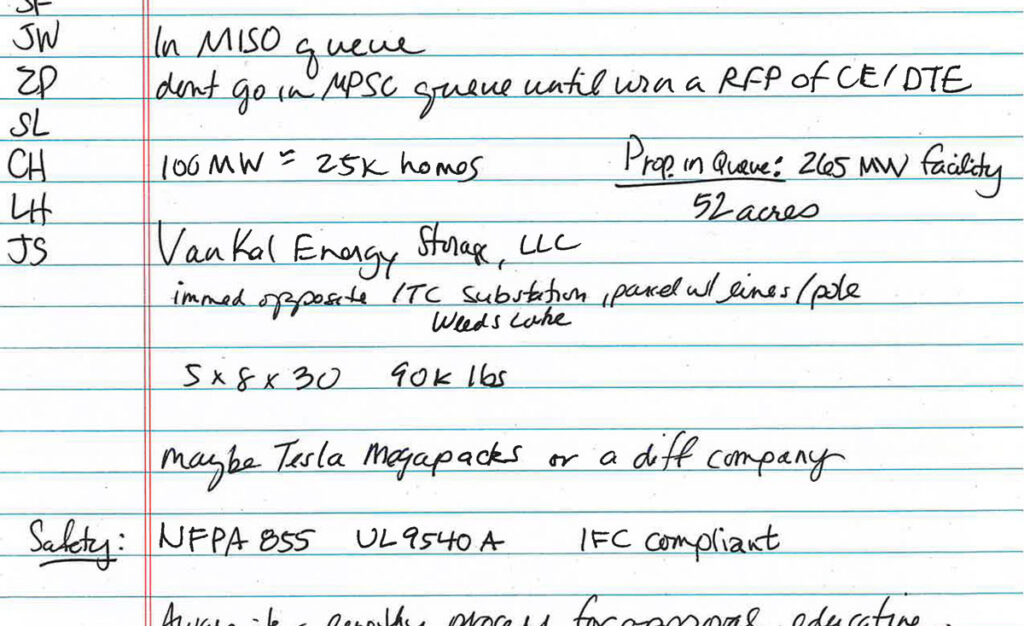 SF
JW In MISO queue
ZP dont go in MPSC queue until win a RFP of CE/DTE
SL
CH 100 MW = 25K homes Prop. in Queue: 265 MW facility
LH 52 acres
JS VanKal Energy Storage, LLC
immed opposite ITC substation, parcel w/ lines/pole
Weeds Lake
5 x 8 x 30 90K lbs
maybe Tesla Megapacks or a diff company
Safety: NFPA 855 UL9540A IFC compliant
process for approval, education